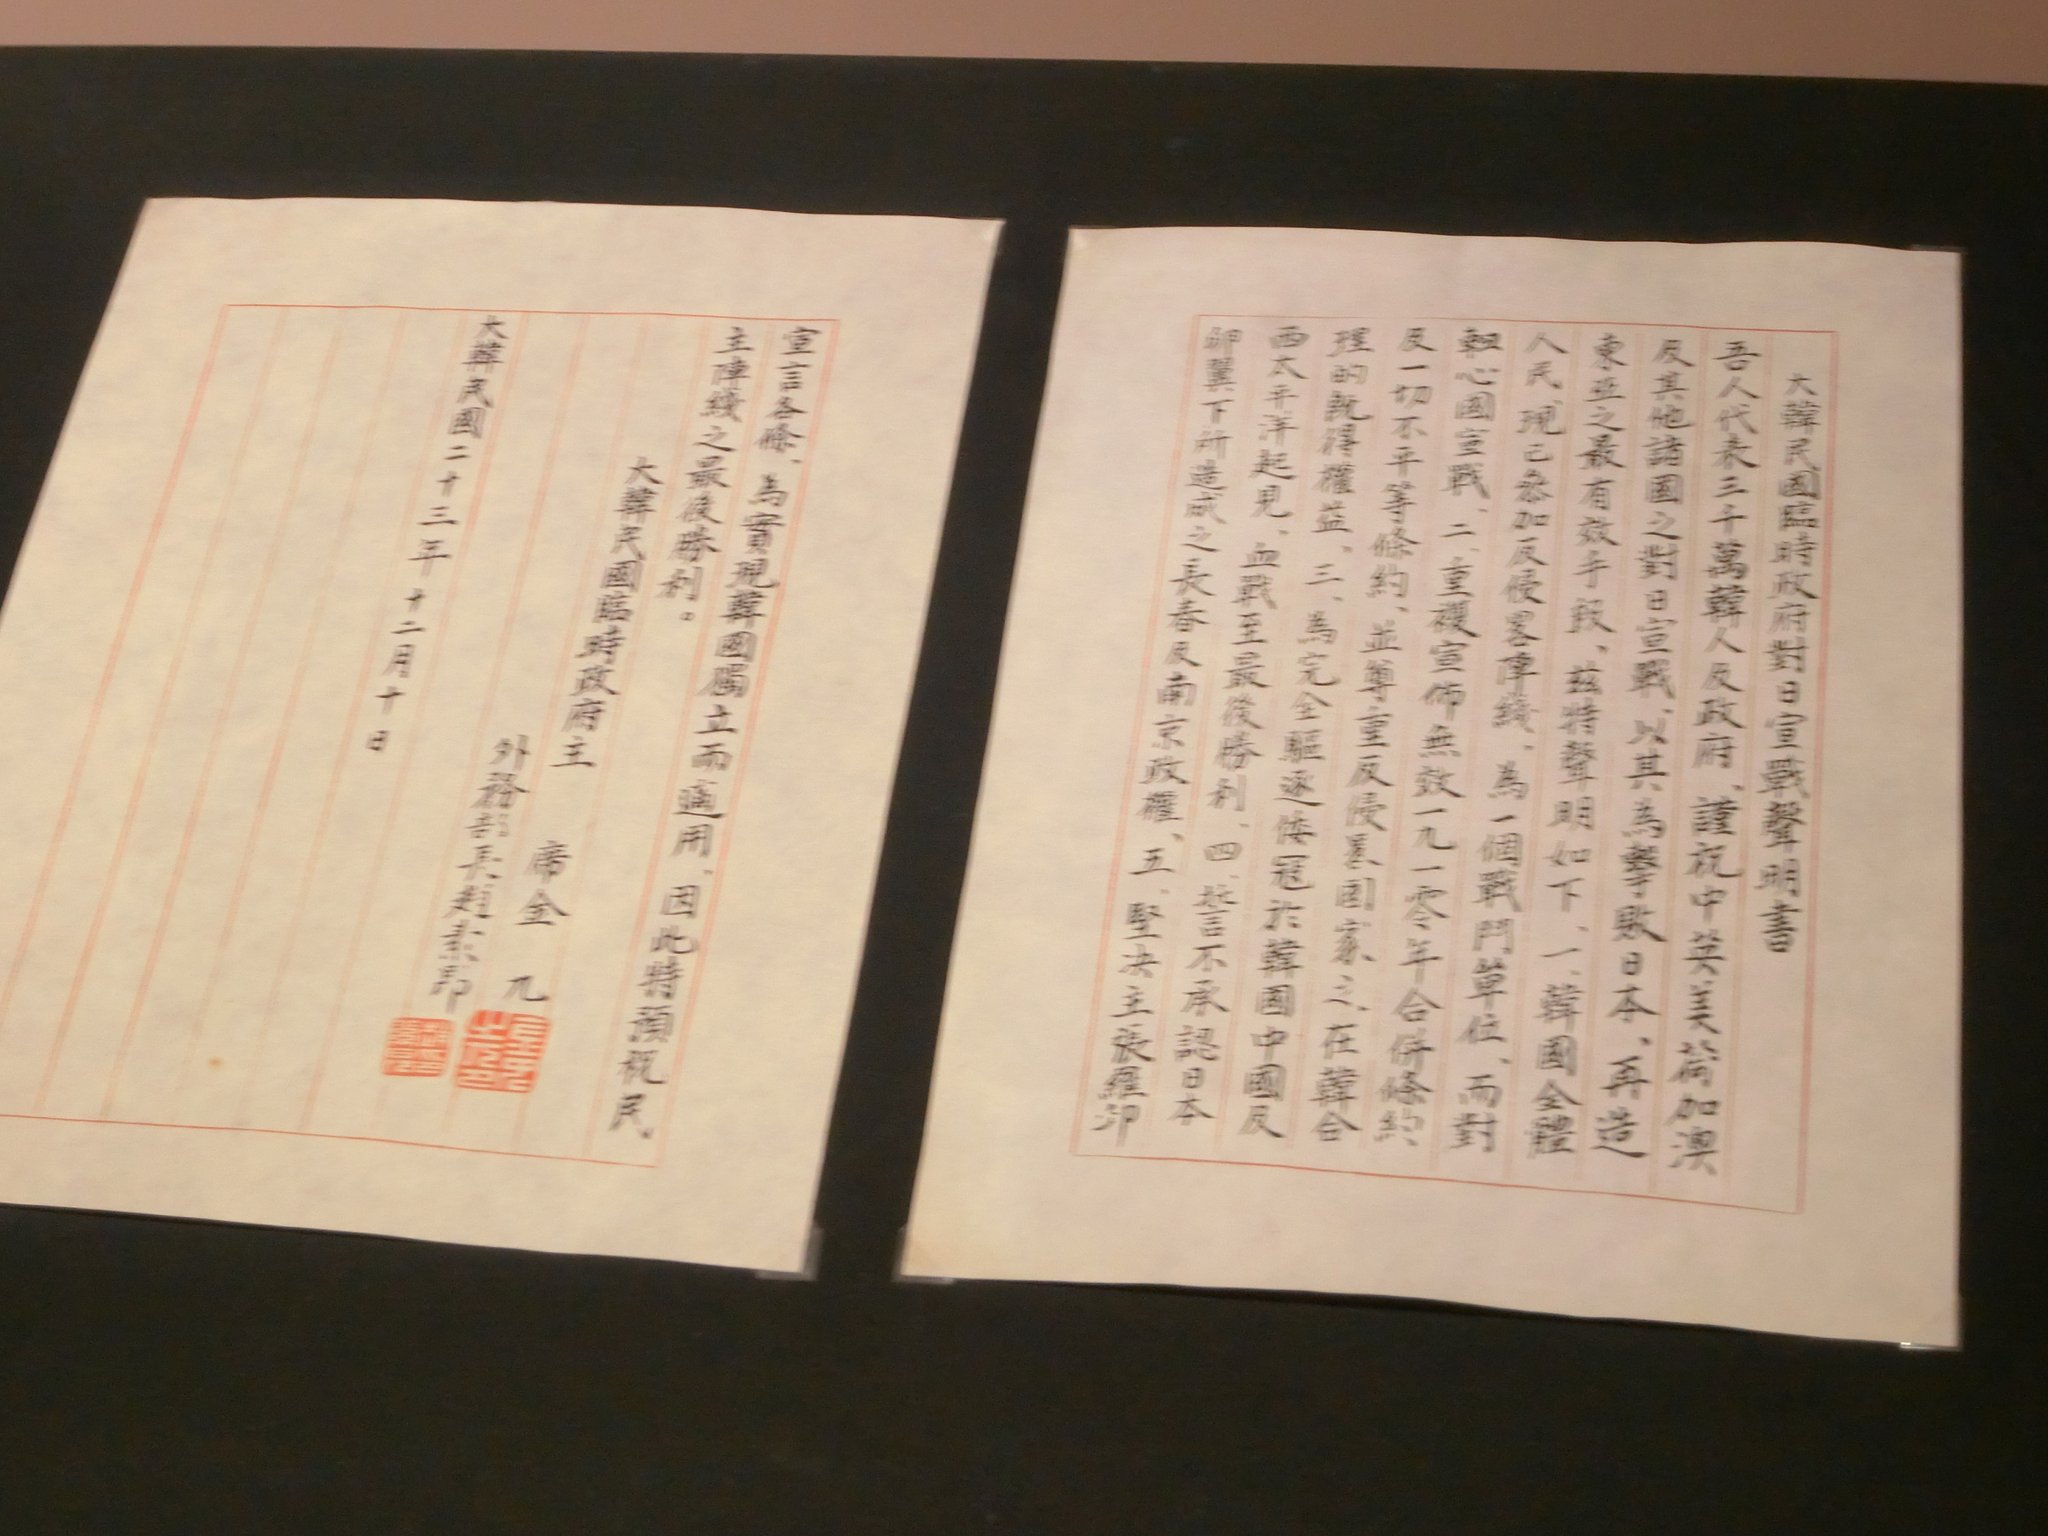 大韓民國臨時政府對日宣戰聲明書
吾人代表三千萬韓人及政府、謹祝中英美荷加澳
及其他諸國之對日宣戰、以其為擊敗日本、再造
東亞之最有效手段、茲特聲明如下、一、韓國全體
人民、現已參加反侵畧陣綫、為一個戰鬥單位、而對
軸心國宣戰、二、重複宣佈無效一九一零年合併條約
及一切不平等條約、並尊重反侵畧國家之、在韓合
理的既得權益、三、為完全驅逐倭寇於韓國中國及
西太平洋起見、血戰至最後勝利、四、誓不承認日本
卵翼下所造成之長春及南京政權、五、堅决主張羅邱
宣言各條、為實現韓國獨立而適用、因此特預祝民
主陣綫之最後勝利。
大韓民國臨時政府主席金九
外務部長趙素昂
大韓民國二十三年十二月十日